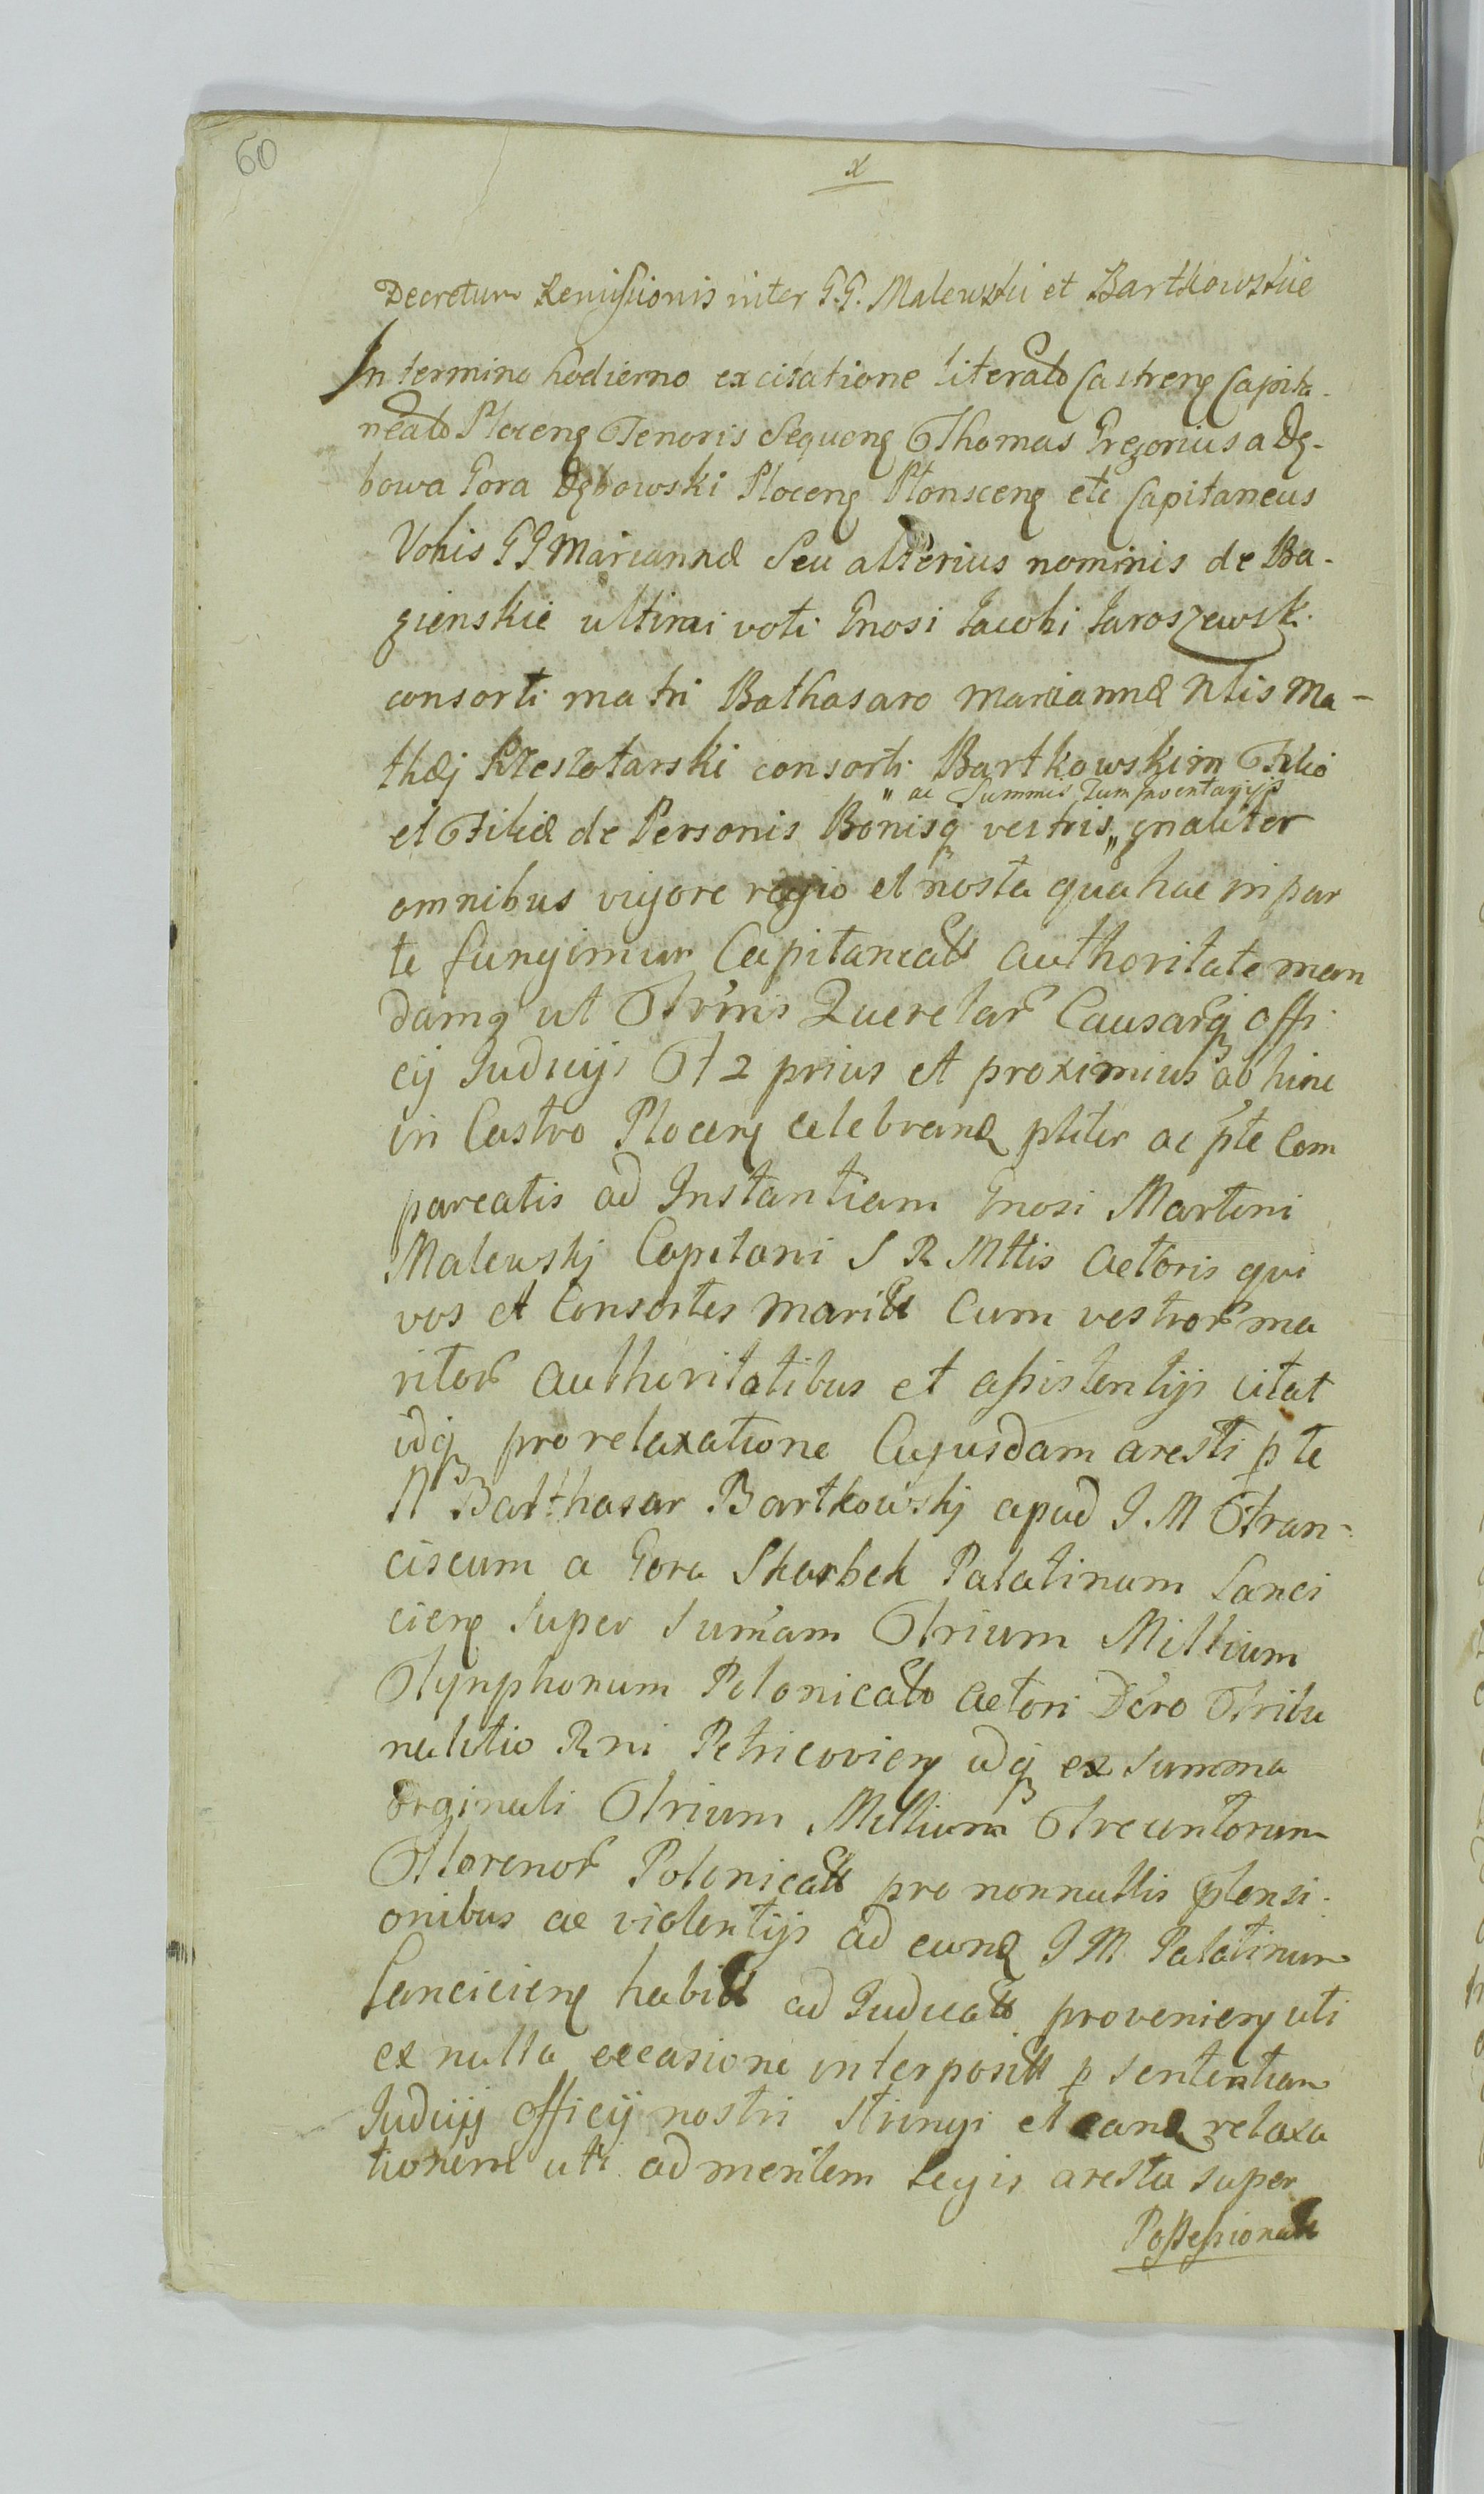 60
x
Decretum Remissionis inter G.G. Malewski et Bartkowskie
In termino hodierno ex citatione literato Castreng Capita-
neato Ploceng Tenoris Sequeng Thomas Gregorius a Dę-
bowa Gora Dębowski Ploceng Plonsceng etc Capitaneus
Vobis GG Mariannæ Seu alterius nominis de Ba-
gienskie ultimi voti Gnosi Jacobi Jaroszewsk.
consorti matri Bathasaro Mariannæ Ntis Ma-
thæj Krzeszotarski consorti Bartkowskim Filio
„ ac Summis Tum Inventarijs
et Filiæ de Personis Bonisq vestris „ gnaliter
omnibus vigore regio et nosta qua hac in par
te fungimur Capitaneali authoritate man
damq ut Trmis Querelar Causarq offi
cij Judicij F 2 prius et proximius ab hinc
in Castro Ploceng celebrand pliter ac pte Com
pareatis ad Instantiam Gnosi Martini
Malewskj Capitani S R Mttis Actoris qui
vos et Consortes maritt Cum vestror ma
ritor authoritatibus et assistentijs citat
idq pro relaxatione Cujusdam aresti p te
N Balthasar Bartkowskj apud J. M Fran-
ciscum a Gora Skarbek Palatinum Lanci
cieng super Summam Trium Millium
Tynphonum Polonicalo actori Dcro Tribu
nalitio Rni Petricovieng idq ex summa
orginali Trium Millium Trecentorum
Florenor Polonicall pro nonnullis ptensi-
onibus ac violentijs ad eund J M. Palatinum
Lancicieng habitt ad Judicatt provenieng uti
ex nulla occasione interpositt p sententiam
Judicij officij nostri stringi et eand relaxa
tionem uti ad mentem Legis aresta super
Possessionatt